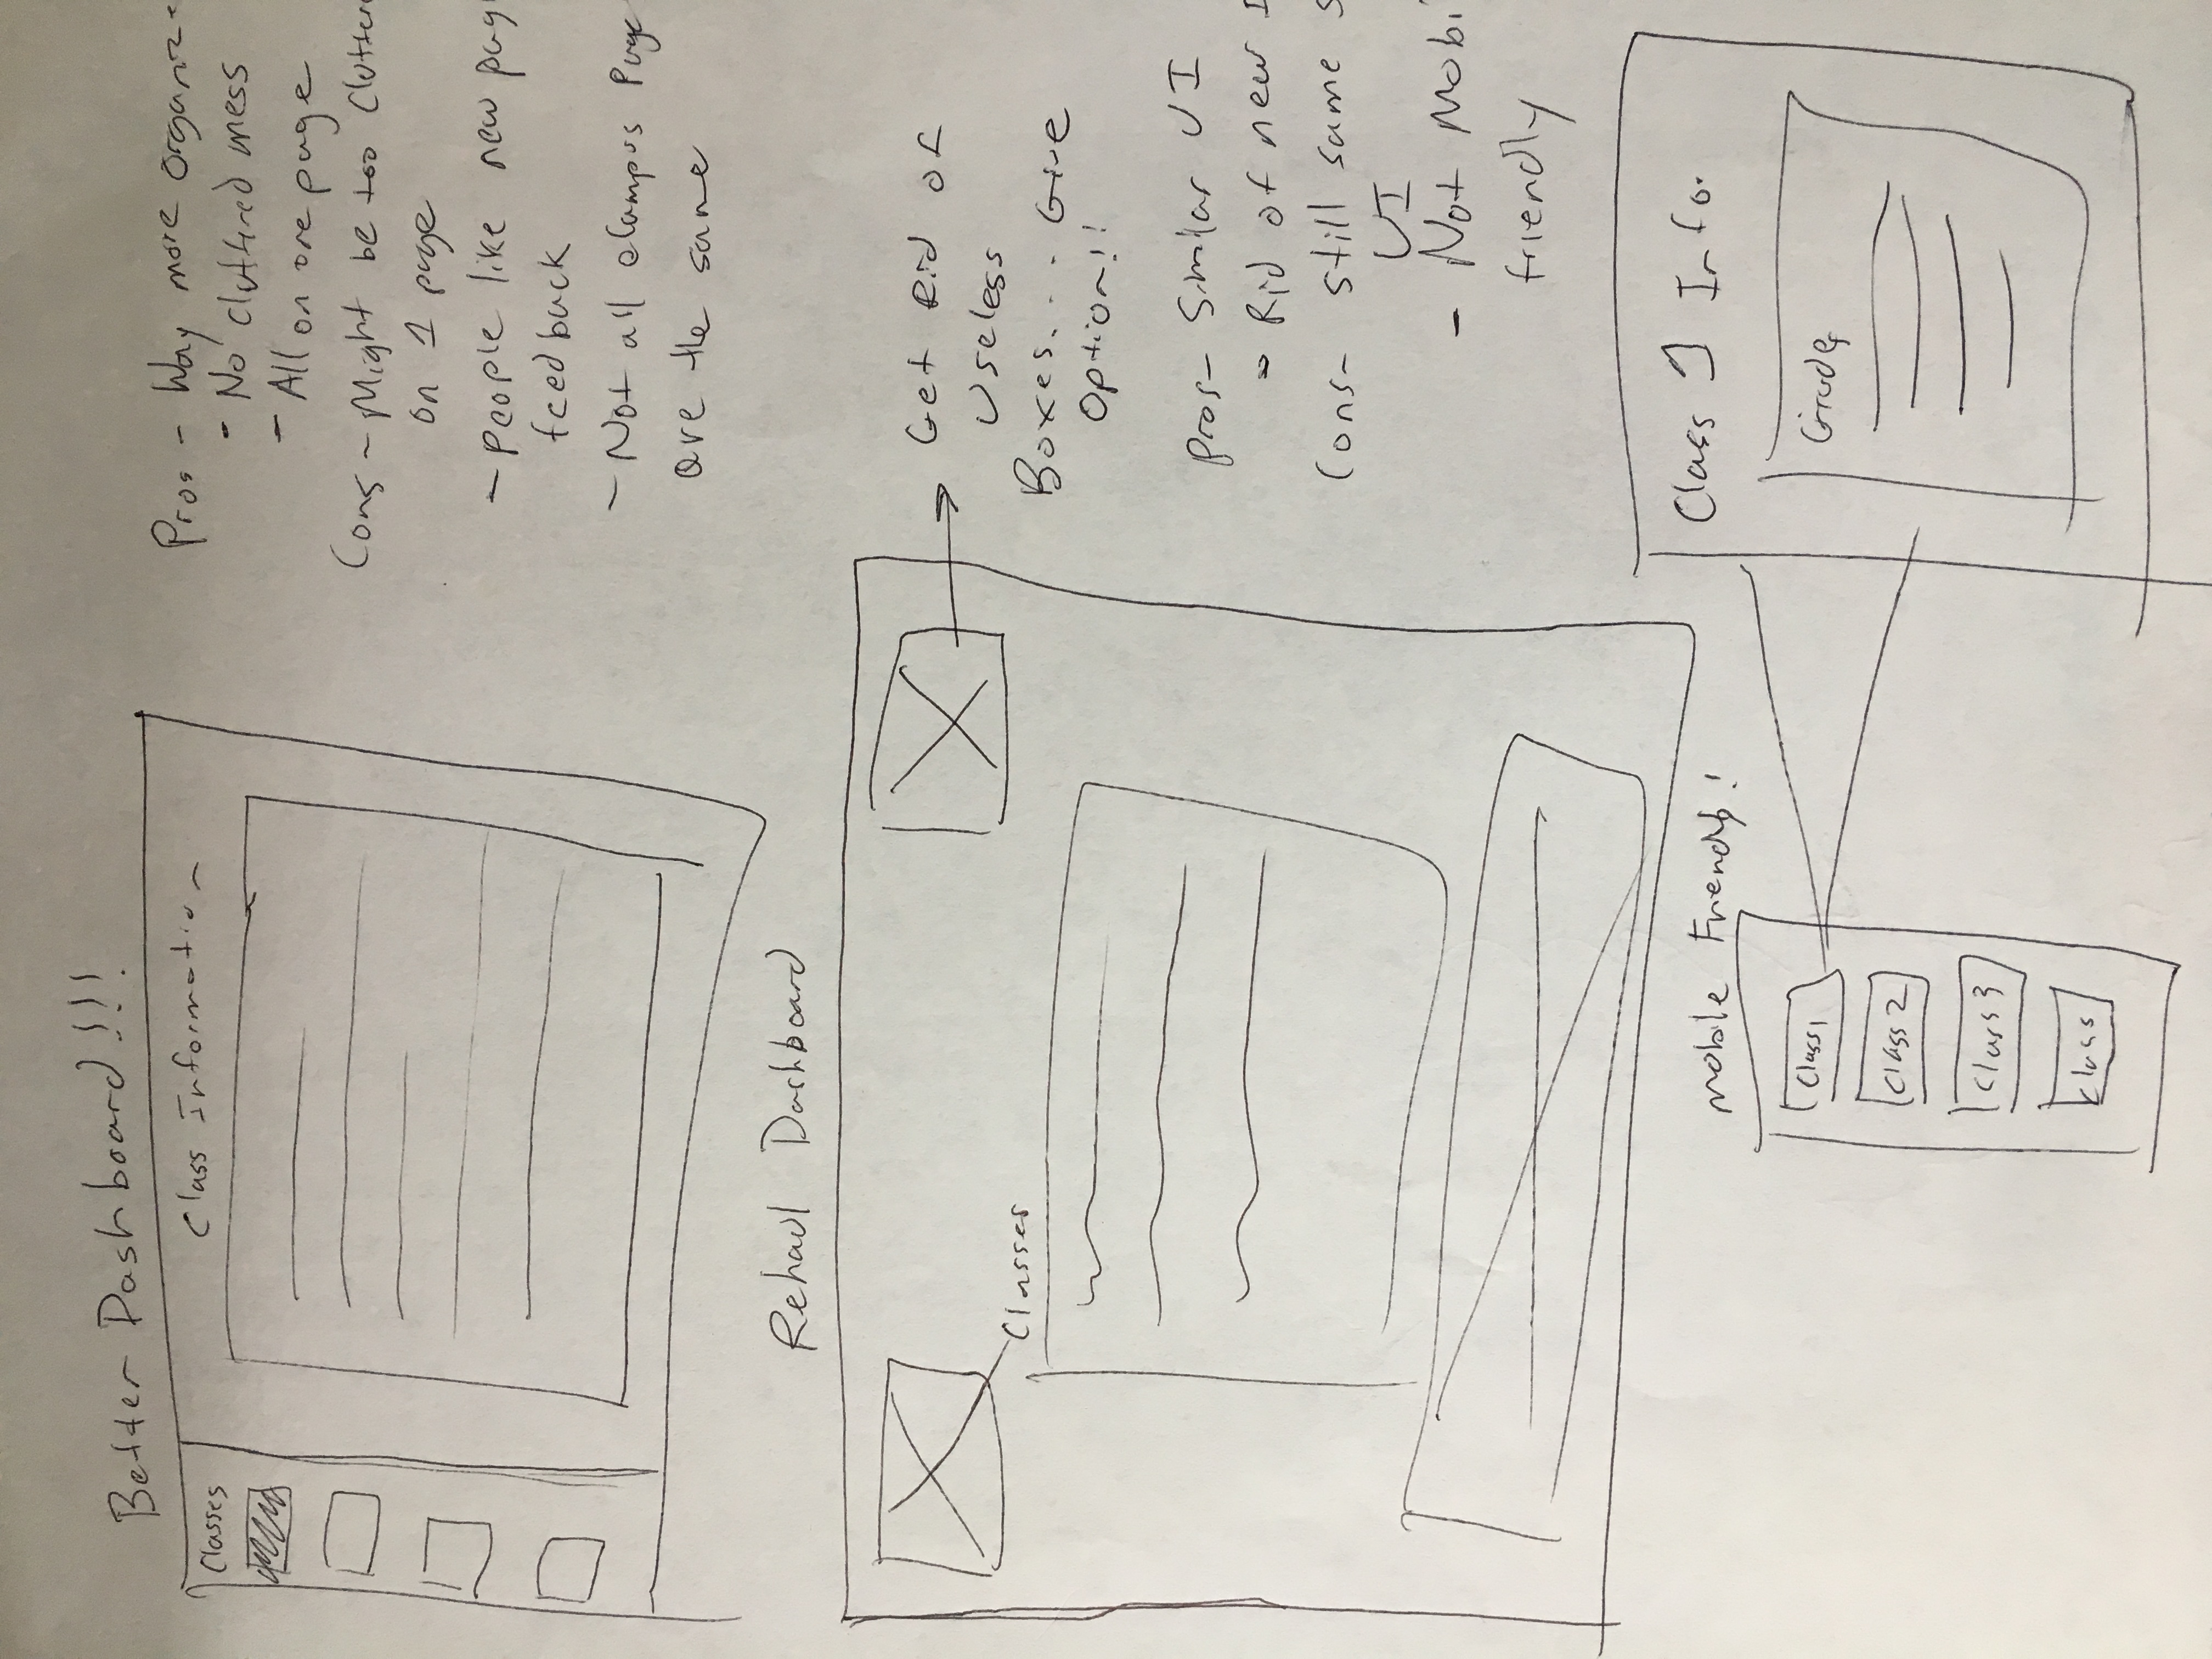 Better Dashboard!!!
Classes
Class Information
Pros - Way more organize
- No cluttered mess
- All on one page
Cons - Might be too Clutter
on 1 page
- People like new pag
feedback
- Not all eCampus Page
are the same
Rehaul Dashboard
Classes
Get Rid of
Useless
Boxes.... Give
Option!!
Pros- Similar UI
- Rid of new
Cons- still same
UI
- Not Mobi
friendly
Mobile Friendly!
Class1
Class 2
Class 3
Class
Class 1 Info.
Grades